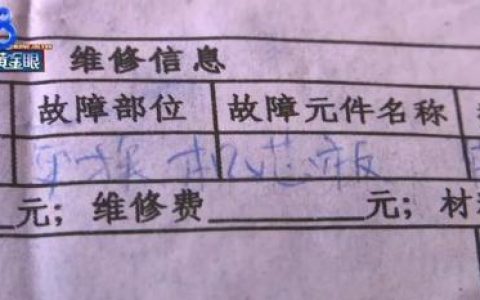 维修信息
故障部位 故障元件名称
更换 机芯板
元; 维修费 元; 材